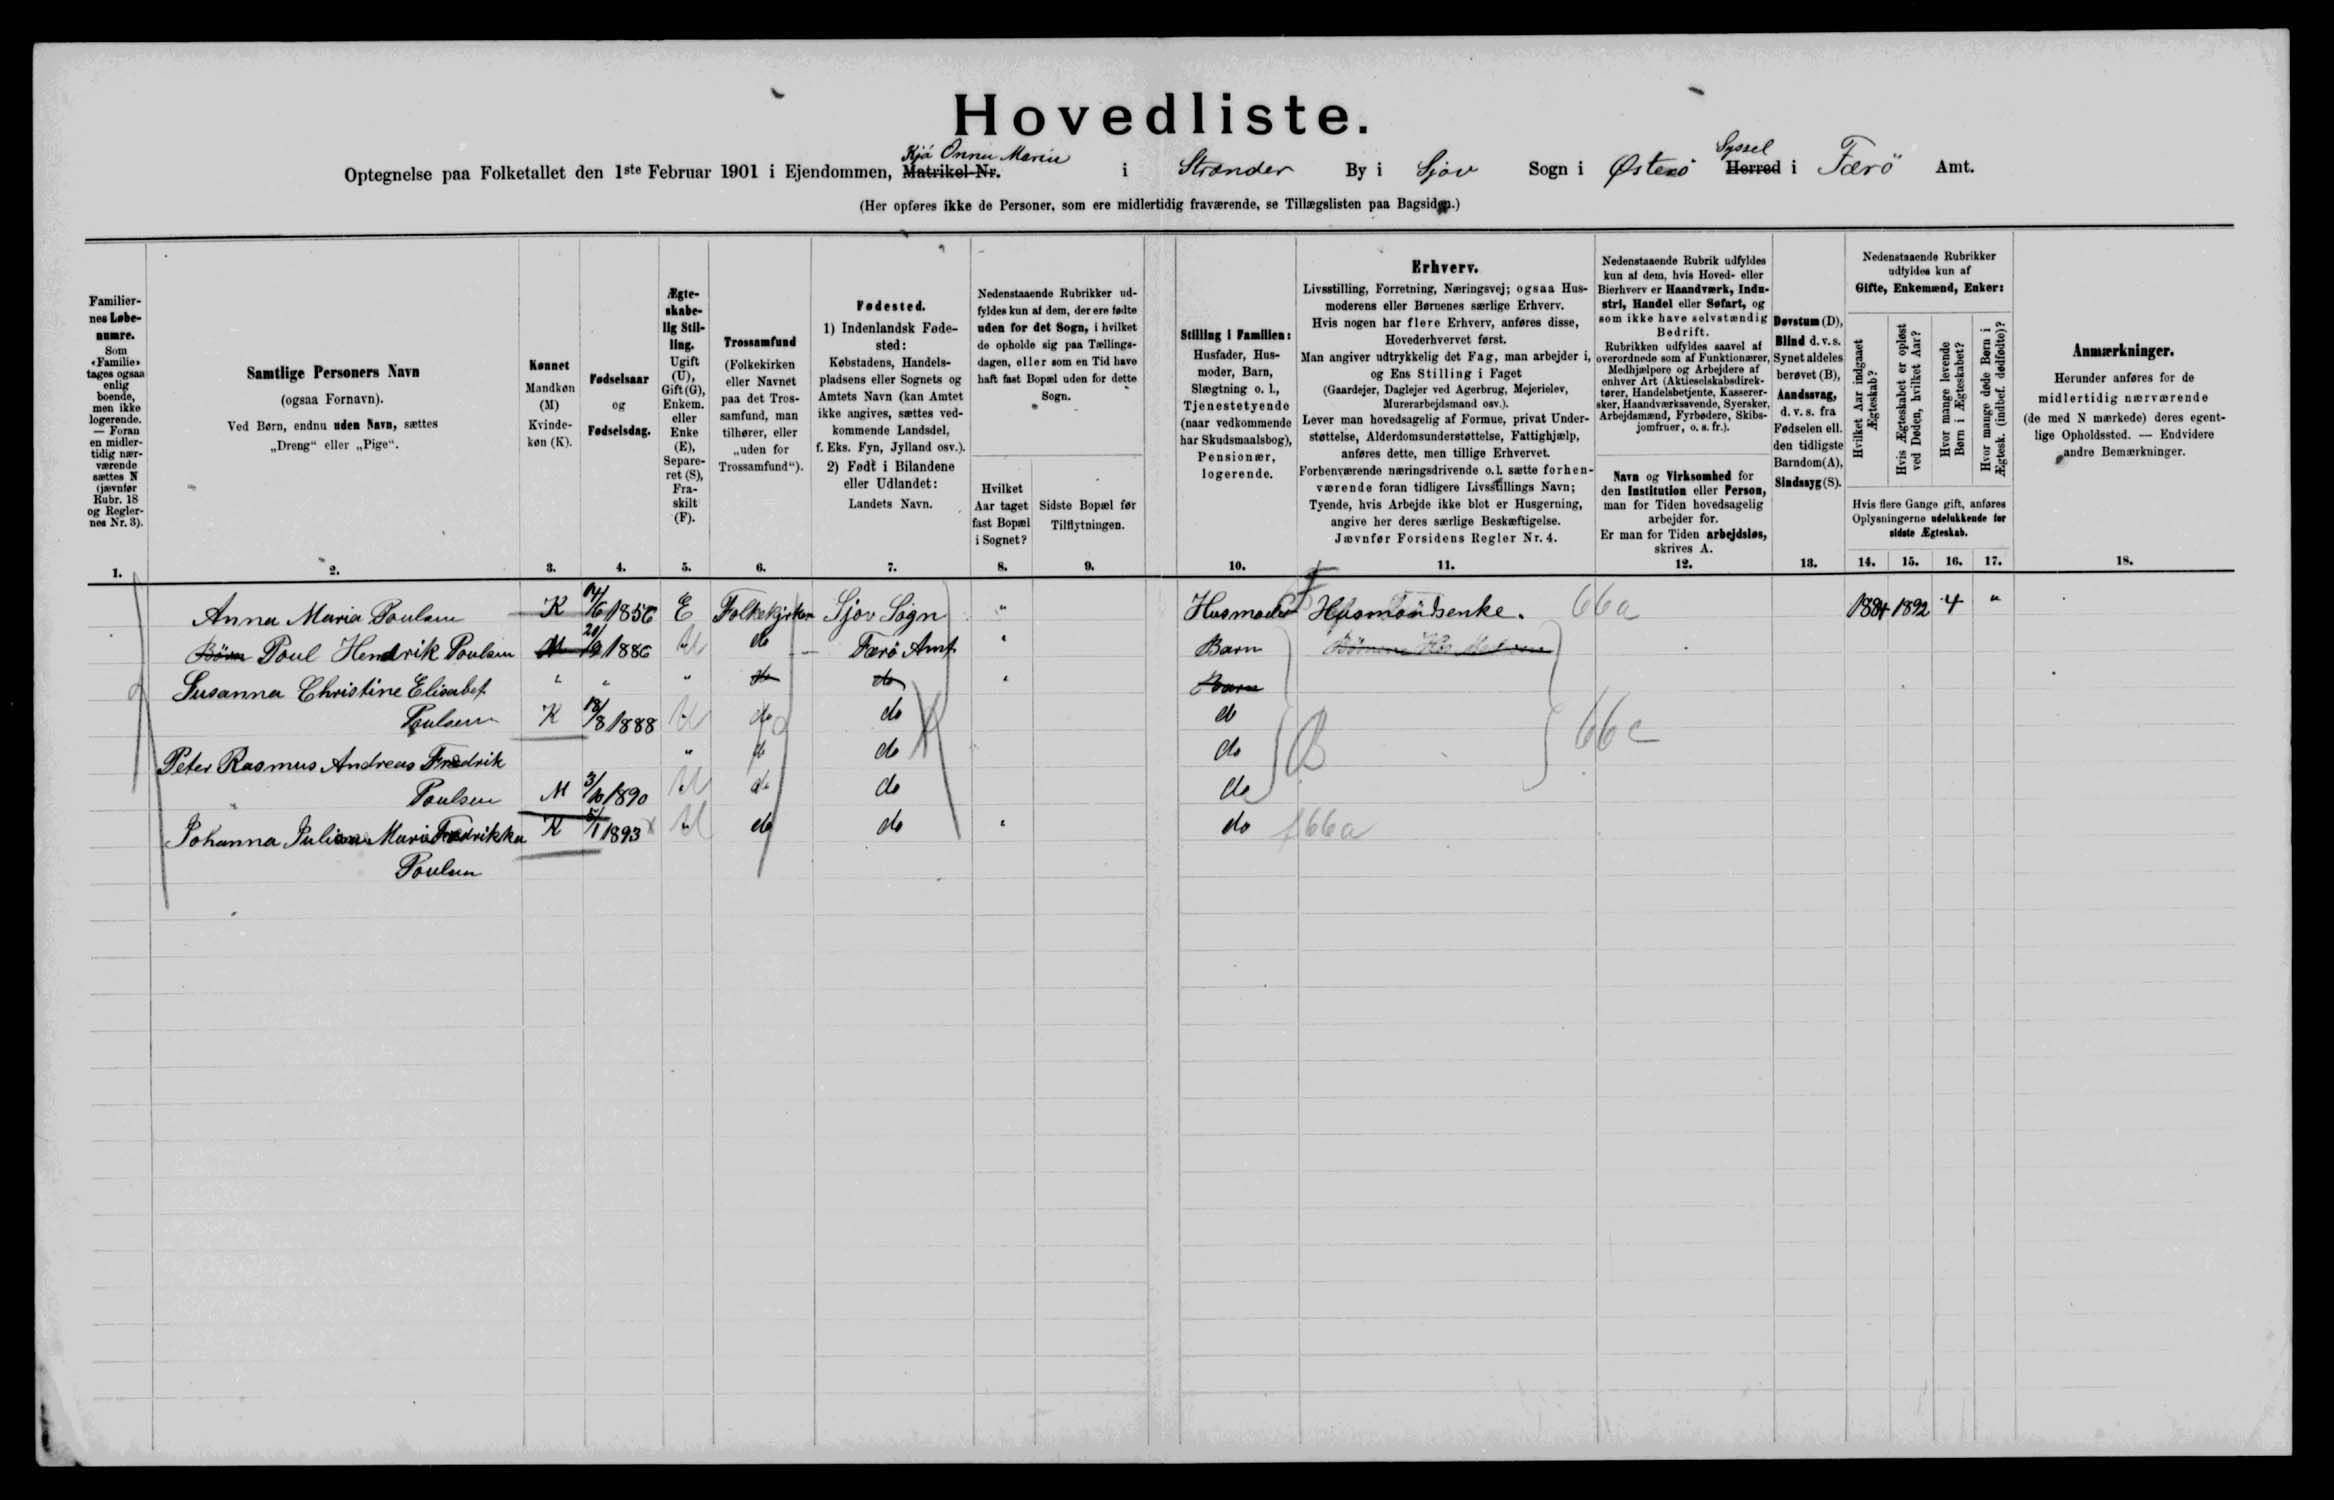 Hovedliste.
Optegnelse paa Folketallet den 1ste Februar 1901 i Ejendommen, Matrikel-Nr. Kjá Onnu Mariu i Strander By i Sjov Sogn i Østerö Herred Syssel i Færö Amt.
(Her opføres ikke de Personer, som ere midlertidig fraværende, se Tillægslisten paa Bagsiden.)
Familiernes Løbenumre. Som «Familie» tages ogsaa enlig boende, men ikke logerende. — Foran en midlertidig nærværende sættes N (jævnfør Rubr. 18 og Reglernes Nr. 3).
Samtlige Personers Navn (ogsaa Fornavn). Ved Børn, endnu uden Navn, sættes „Dreng“ eller „Pige“.
Kønnet Mandkøn (M) Kvindekøn (K).
Fødselsaar og Fødselsdag.
Ægteskabelig Stilling. Ugift (U), Gift (G), Enkem. eller Enke (E), Separeret (S), Fraskilt (F).
Trossamfund (Folkekirken eller Navnet paa det Trossamfund, man tilhører, eller „uden for Trossamfund“).
Fødested. 1) Indenlandsk Fødested: Købstadens, Handelspladsens eller Sognets og Amtets Navn (kan Amtet ikke angives, sættes vedkommende Landsdel, f. Eks. Fyn, Jylland osv.). 2) Født i Bilandene eller Udlandet: Landets Navn.
Nedenstaaende Rubrikker udfyldes kun af dem, der ere fødte uden for det Sogn, i hvilket de opholde sig paa Tællingsdagen, eller som en Tid have haft fast Bopæl uden for dette Sogn.
Hvilket Aar taget fast Bopæl i Sognet?
Sidste Bopæl før Tilflytningen.
Stilling i Familien: Husfader, Husmoder, Barn, Slægtning o. l., Tjenestetyende (naar vedkommende har Skudsmaalsbog), Pensionær, logerende.
Erhverv.
Livsstilling, Forretning, Næringsvej; ogsaa Husmoderens eller Børnenes særlige Erhverv.
Hvis nogen har flere Erhverv, anføres disse, Hovederhvervet først.
Man angiver udtrykkelig det Fag, man arbejder i, og Ens Stilling i Faget
(Gaardejer, Daglejer ved Agerbrug, Mejerielev, Murerarbejdsmand osv.).
Lever man hovedsagelig af Formue, privat Understøttelse, Alderdomsunderstøttelse, Fattighjælp, anføres dette, men tillige Erhvervet.
Forhenværende næringsdrivende o. l. sætte forhenværende foran tidligere Livsstillings Navn;
Tyende, hvis Arbejde ikke blot er Husgerning, angive her deres særlige Beskæftigelse.
Jævnfør Forsidens Regler Nr. 4.
Nedenstaaende Rubrik udfyldes kun af dem, hvis Hoved- eller Bierhverv er Haandværk, Industri, Handel eller Søfart, og som ikke have selvstændig Bedrift.
Rubrikken udfyldes saavel af overordnede som af Funktionærer, Medhjælpere og Arbejdere af enhver Art (Aktieselskabsdirektører, Handelsbetjente, Kasserersker, Haandværkssvende, Syersker, Arbejdsmænd, Fyrbødere, Skibsjomfruer, o. s. fr.).
Navn og Virksomhed for den Institution eller Person, man for Tiden hovedsagelig arbejder for.
Er man for Tiden arbejdsløs, skrives A.
Døvstum (D), Blind d. v. s. Synet aldeles berøvet (B), Aandssvag, d. v. s. fra Fødselen ell. den tidligste Barndom (A), Sindssyg (S).
Nedenstaaende Rubrikker udfyldes kun af Gifte, Enkemænd, Enker:
Hvilket Aar indgaaet Ægteskab?
Hvis Ægteskabet er opløst ved Døden, hvilket Aar?
Hvor mange levende Børn i Ægteskabet?
Hvor mange døde Børn i Ægtesk. (indbef. dødfødte)?
Hvis flere Gange gift, anføres Oplysningerne udelukkende for sidste Ægteskab.
Anmærkninger.
Herunder anføres for de midlertidig nærværende (de med N mærkede) deres egentlige Opholdssted. — Endvidere andre Bemærkninger.
1. 2. 3. 4. 5. 6. 7. 8. 9. 10. 11. 12. 13. 14. 15. 16. 17. 18.
Anna Maria Poulsen K 14/6 1856 E Folkekjirken Sjov Sogn " Husmoder Husmandsenke. 66a 1884 1892 4 "
Börn Poul Hendrik Poulsen M 1886 U do Færö Amt " Barn
Susanna Christine Elisabet " " " do do " Barn
Poulsen K 18/8 1888 U do do do 66c
Peter Rasmus Andreas Fredrik " do do do B
Poulsen M 3/10 1890 U do do do
Johanna Juliane Marie Fredrikka K 5/1 1893 U do do " do 66a
Poulsen